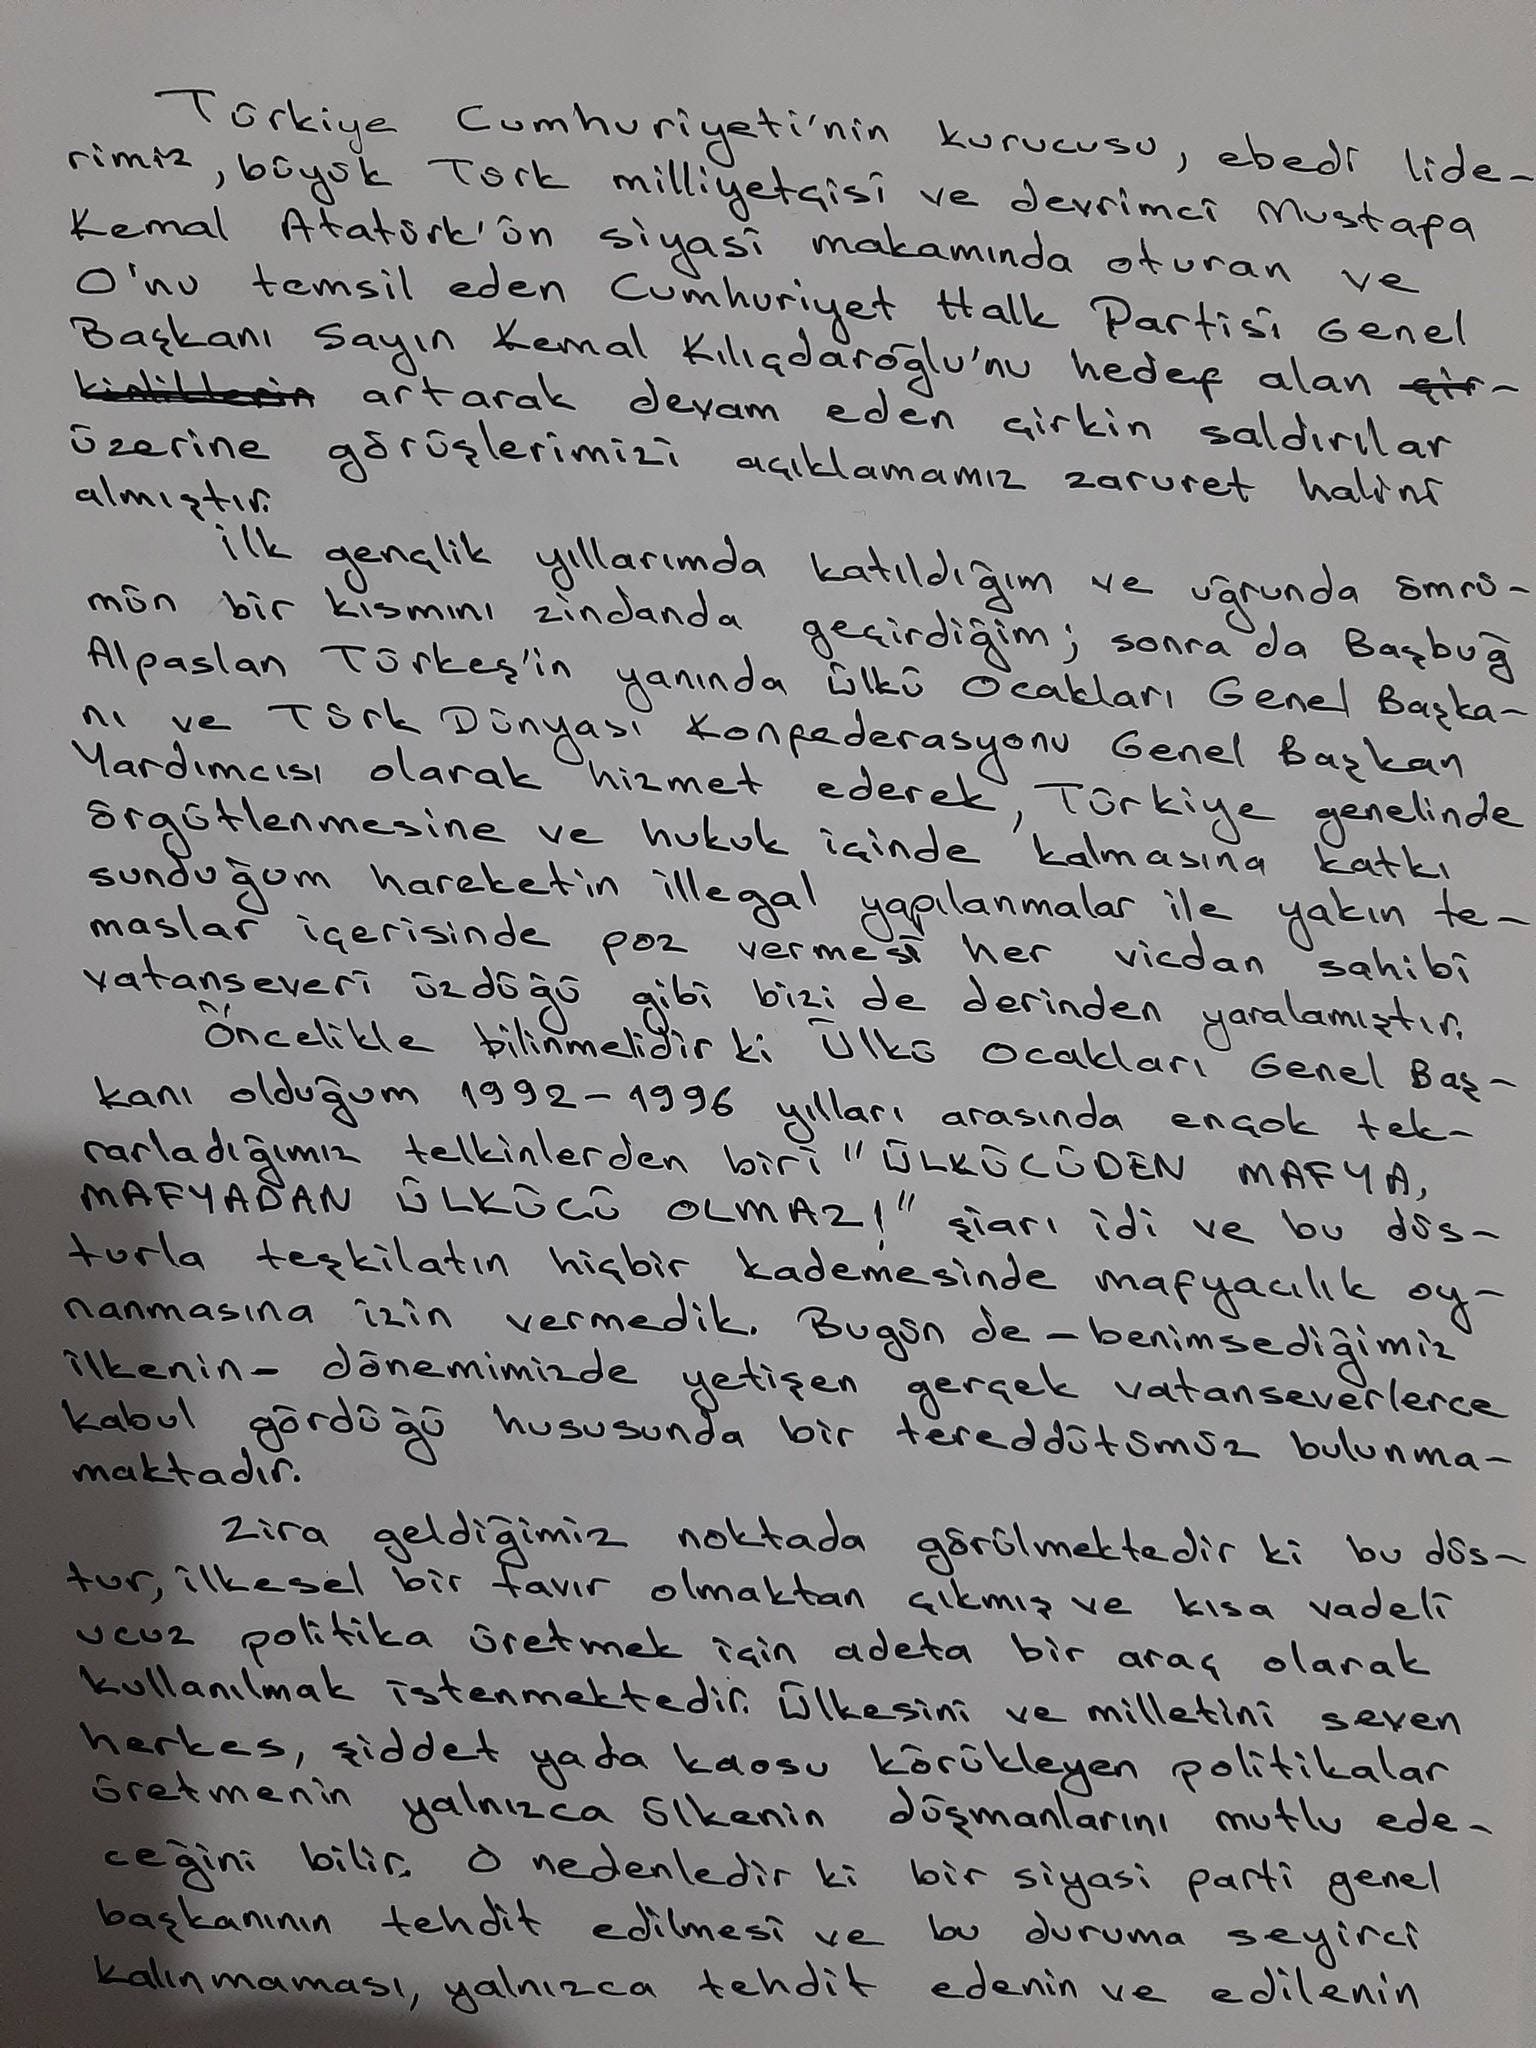 Türkiye Cumhuriyeti'nin kurucusu, ebedi lide-
rimiz, büyük Türk milliyetçisi ve devrimci Mustafa
Kemal Atatürk'ün siyasi makamında oturan ve
O'nu temsil eden Cumhuriyet Halk Partisi Genel
Başkanı Sayın Kemal Kılıçdaroğlu'nu hedef alan çir-
kinliklerin artarak devam eden çirkin saldırılar
üzerine görüşlerimizi açıklamamız zaruret halini
almıştır.
İlk gençlik yıllarımda katıldığım ve uğrunda ömrü-
mün bir kısmını zindanda geçirdiğim; sonra da Başbuğ
Alpaslan Türkeş'in yanında Ülkü Ocakları Genel Başka-
nı ve Türk Dünyası Konfederasyonu Genel Başkan
Yardımcısı olarak hizmet ederek, Türkiye genelinde
örgütlenmesine ve hukuk içinde kalmasına katkı
sunduğum hareketin illegal yapılanmalar ile yakın te-
maslar içerisinde poz vermesi her vicdan sahibi
vatanseveri üzdüğü gibi bizi de derinden yaralamıştır.
Öncelikle bilinmelidir ki Ülkü Ocakları Genel Baş-
kanı olduğum 1992-1996 yılları arasında ençok tek-
rarladığımız telkinlerden biri "ÜLKÜCÜDEN MAFYA,
MAFYADAN ÜLKÜCÜ OLMAZ!" şiarı idi ve bu düs-
turla teşkilatın hiçbir kademesinde mafyacılık oy-
nanmasına izin vermedik. Bugün de - benimsediğimiz
ilkenin - dönemimizde yetişen gerçek vatanseverlerce
kabul gördüğü hususunda bir tereddütümüz bulunma-
maktadır.
Zira geldiğimiz noktada görülmektedir ki bu düs-
tur, ilkesel bir tavır olmaktan çıkmış ve kısa vadeli
ucuz politika üretmek için adeta bir araç olarak
kullanılmak istenmektedir. Ülkesini ve milletini seven
herkes, şiddet yada kaosu körükleyen politikalar
üretmenin yalnızca ülkenin düşmanlarını mutlu ede-
ceğini bilir. O nedenledir ki bir siyasi parti genel
başkanının tehdit edilmesi ve bu duruma seyirci
kalınmaması, yalnızca tehdit edenin ve edilenin